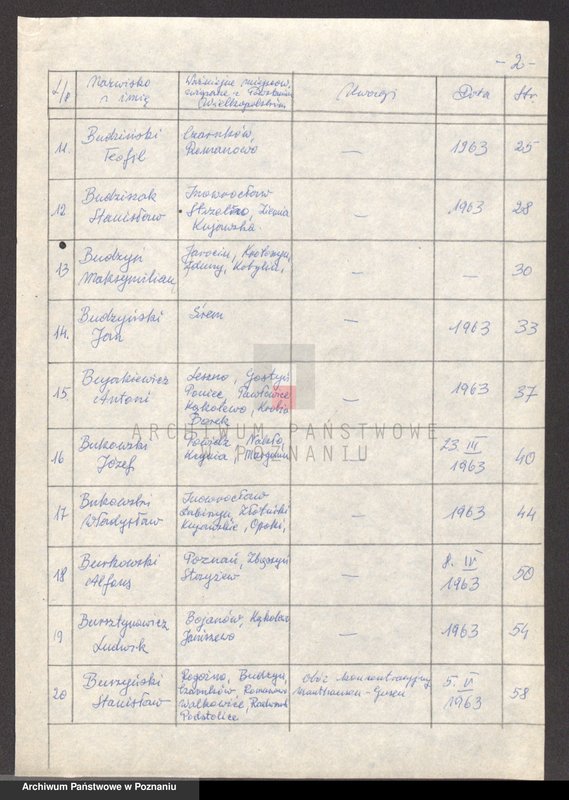 - 2 -
L/p Nazwisko i imię Ważniejsze miejscow. związane z Powstaniem Wielkopolskim Uwagi Data Str
11. Budziński Teofil Czarnków, Romanowo — 1963 25
12 Budziszak Stanisław Inowrocław Strzelno, Ziemia Kujawska. — 1963 28
13 Budzyń Maksymilian Jarocin, Krotoszyn, Zduny, Kobylin, — — 30
14. Budzyński Jan Śrem — 1963 33
15 Bujakiewicz Antoni Leszno, Gostyń Poniec, Pawłowice Kąkolewo, Krobia Borek — 1963 37
16 Bukowski Józef Powidz, Nakło, Kcynia, — 23. III 1963 40
17 Bukowski Władysław Inowrocław Łabiszyn, Złotniki Kujawskie, Opoki, — 1963 44
18 Burkowski Alfons Poznań, Zbąszyń — 8. IV 1963 50
19 Bursztynowicz Ludwik Bojanów, Kąkolew Janiszewo — 1963 54
20 Burzyński Stanisław Rogoźno, Budzyń, Czarnków, Romanowo Walkowice, Radwonk Podstolice Obóz koncentracyjny Mauthausen-Gusen 5. VI 1963 58
ARCHIWUM PAŃSTWOWE
W POZNANIU
Archiwum Państwowe w Poznaniu